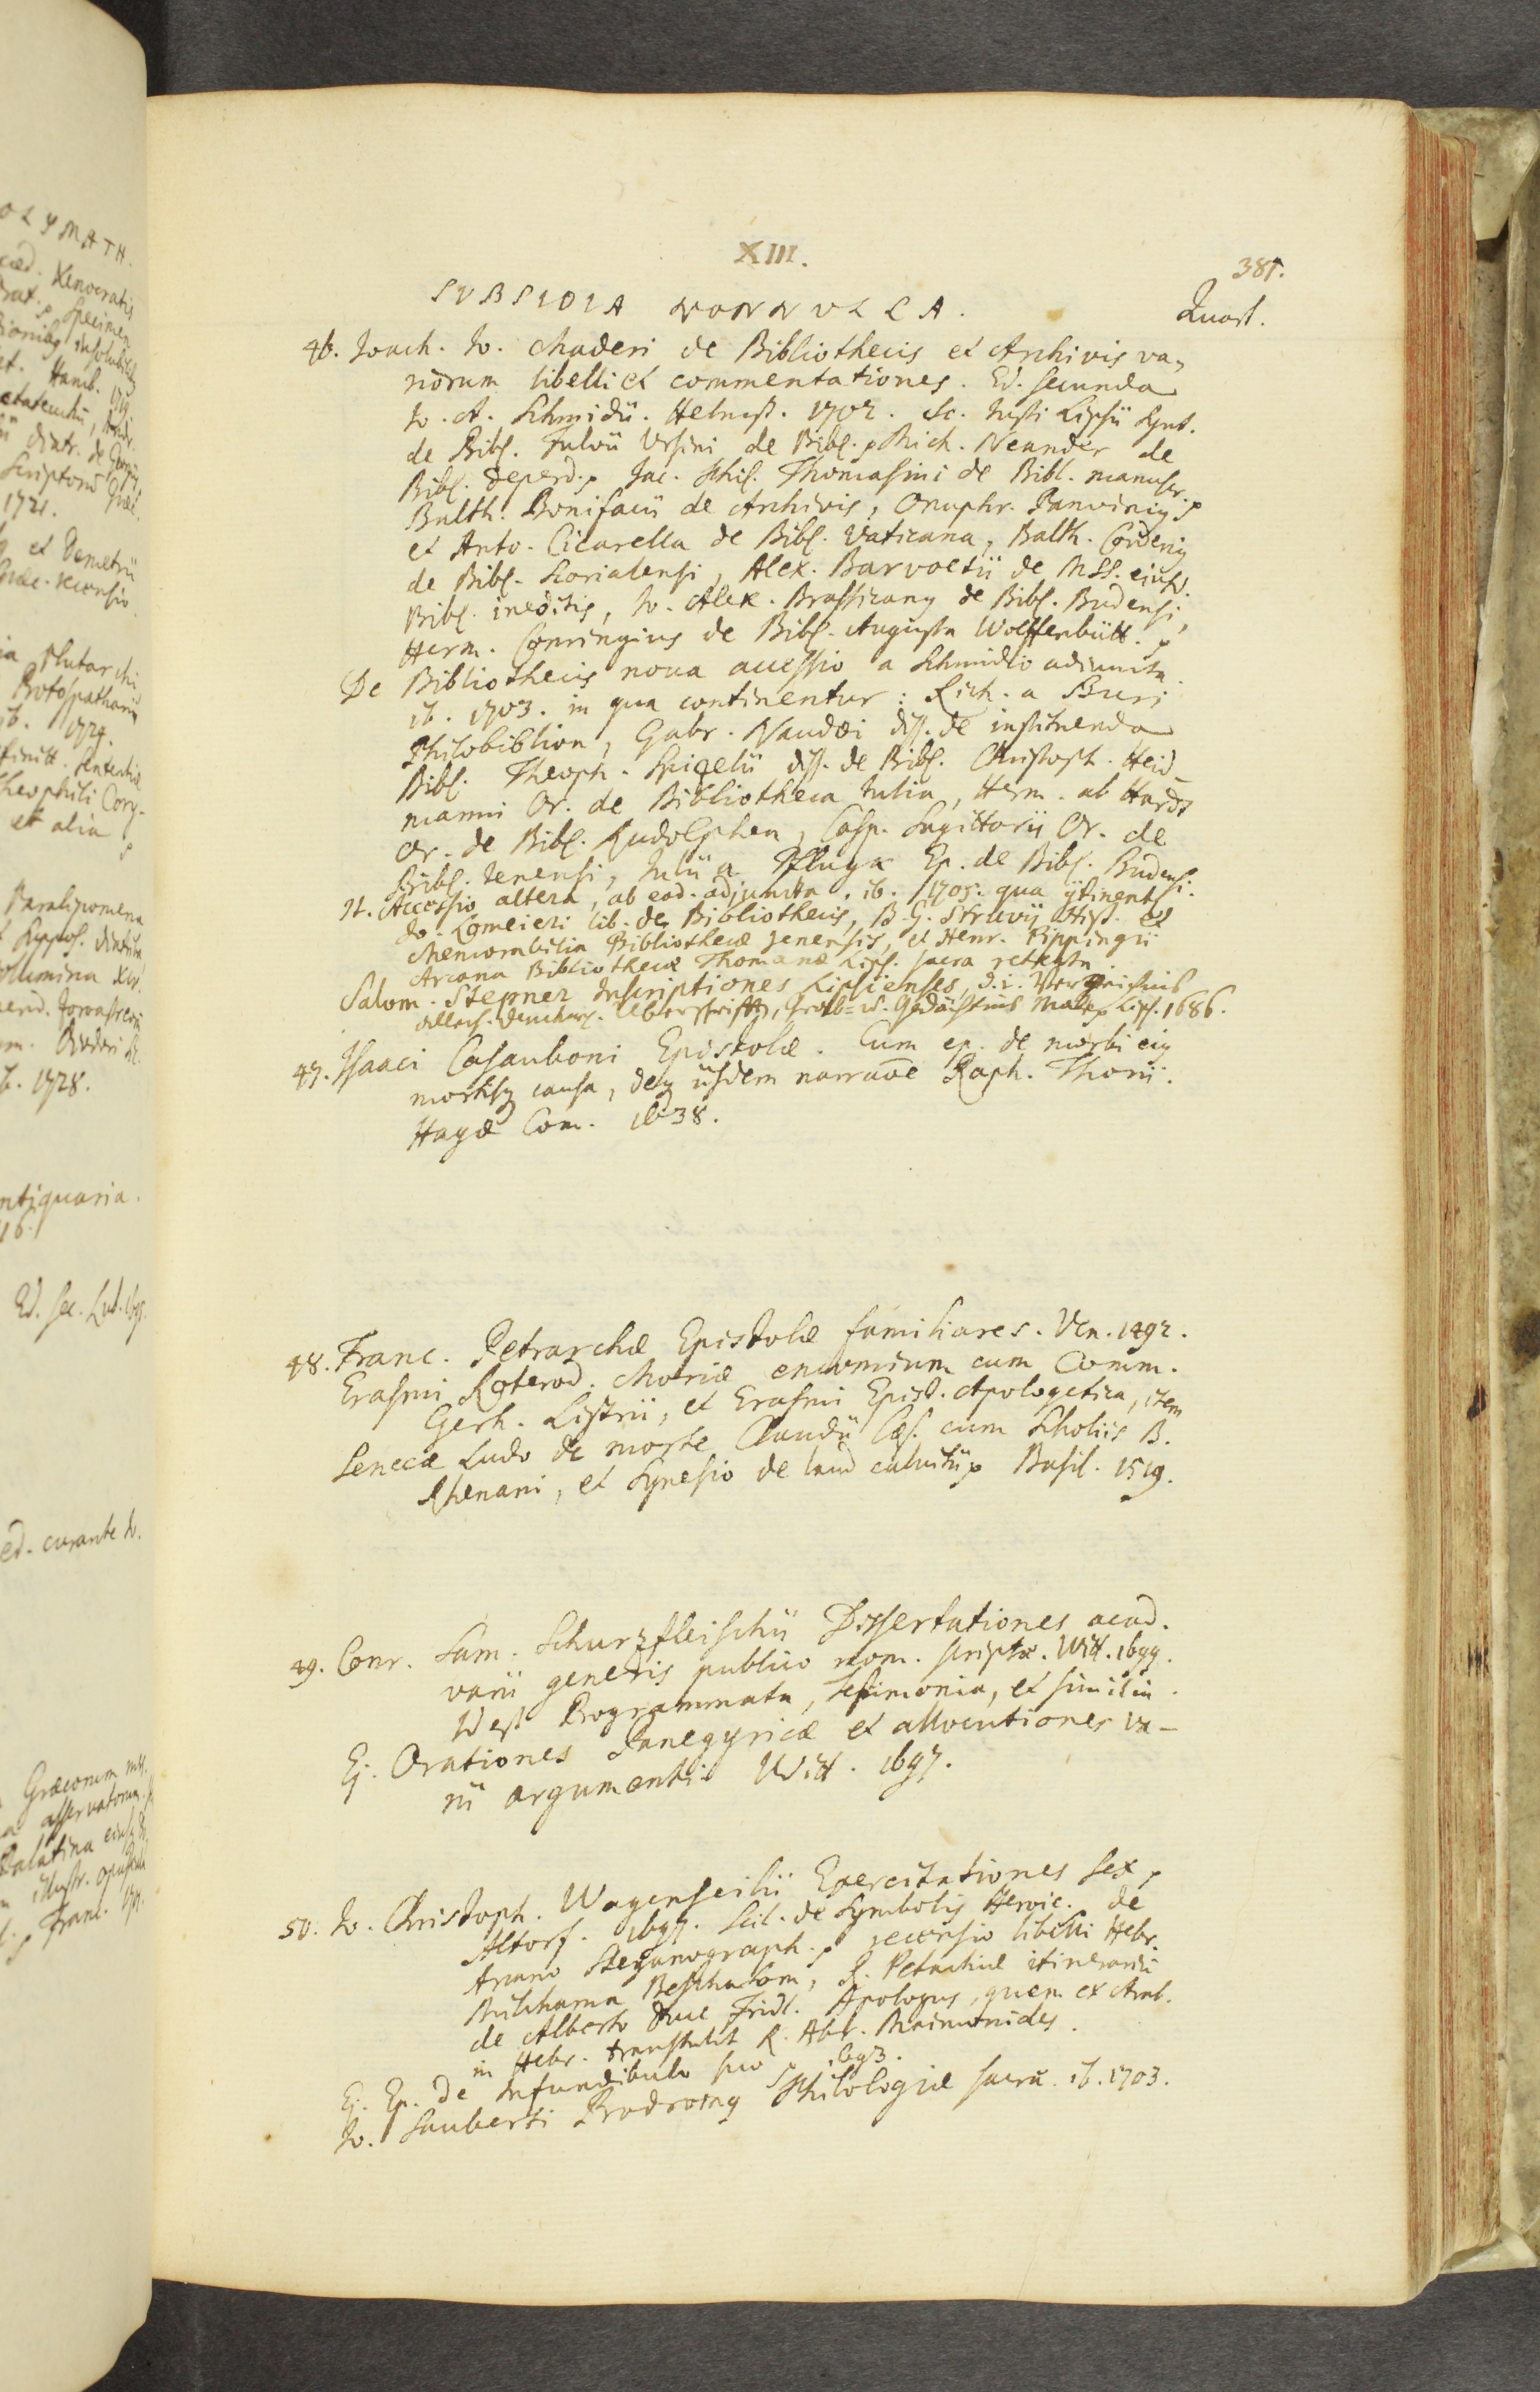 XIII.
381.
SVBSIDIA NONNVLLA.
Quart.
46. Joach. Jo. Maderi de Bibliothecis et Archivis va-
riorum libelli et commentationes. Ed. secunda
Jo. A. Schmidii. Helmst. 1702. Sc. Justi Lipsii Synt.
de Bibl. Fulvii Ursini de Bibl. Mich. Neander de
Bibl. deperd. Jac. Phil. Thomasini de Bibl. manuscr.
Balth. Bonifacii de Archivis, Onuphr. Panvinius
et Anto. Cicarella de Bibl. Vaticana, Balth. Corderius
de Bibl. Scorialensi, Alex. Barvoetii de MSS. eiusd.
Bibl. ineditis, Jo. Alex. Brassicanus de Bibl. Budensi,
Herm. Conringius de Bibl. Augusta Wolffenbütt.
De Bibliothecis nova accessio a Schmidio adiuncta.
ib. 1703. in qua continentur: Rich. a Buri
Philobiblion, Gabr. Naudæi diss. de instituenda
Bibl. Theoph. Spizelii diss. de Bibl. Christoph. Heid-
manni Or. de Bibliotheca Julia, Herm. ab Hardt
Or. de Bibl. Rudolphea, Casp. Sagittarii Or. de
Bibl. Jenensi, Julii a Pflugk Ep. de Bibl. Budensi.
It. Accessio altera, ab eod. adjuncta. ib. 1705. qua continent
Jo. Lomeieri lib. de Bibliothecis, B. G. Struvij Hist. et
Memorabilia Bibliothecæ Jenensis, et Henr. Pippingii
Arcana Bibliothecæ Thomanæ Lips. sacra retecta.
Salom. Stepner Inscriptiones Lipsienses, d. i. Verzeichnis
allerh. denckw. Uberschrifften, Grab- u. Gedächtnis Male. Lips. 1686.
47. Isaaci Casauboni Epistolæ. Cum ep. de morbi eius
mortisq causa, deq iisdem narraōe Raph. Thorii.
Hagæ Com. 1638.
48. Franc. Petrarchæ Epistolæ familiares. Ven. 1492.
Erasmi Roterod. Moriæ encomium cum Comm.
Gerh. Listrii, et Erasmi Epist. Apologetica, item
Senecæ Ludo de morte Claudii Cæs. cum Scholiis B.
Rhenani, et Synesio de laud calvitii Basil. 1519.
49. Conr. Sam. Schurzfleischii Dissertationes acad.
varii generis publico nom. scriptæ. Witt. 1699.
Programmata, testimonia, et similia.
Ej. Orationes Panegyricæ et allocutiones va-
rii argumenti. Witt. 1697.
50. Jo. Christoph. Wagenseilii Exercitationes sex
Altorf. 1697. Scil. de Symbolis Heroic. de
Arcano Steganograph. recensio libelli Hebr.
Milchama Beschalom, R. Petachiæ itinerarii
de Alberto Duce Fridl. Apologus, quem ex Arab.
in Hebr. transtulit R. Abr. Maimonides.
Ej. Ep. de Infundibulo suo 1693.
Jo. Sauberti Prodromus Philologiæ sacræ. ib. 1703.